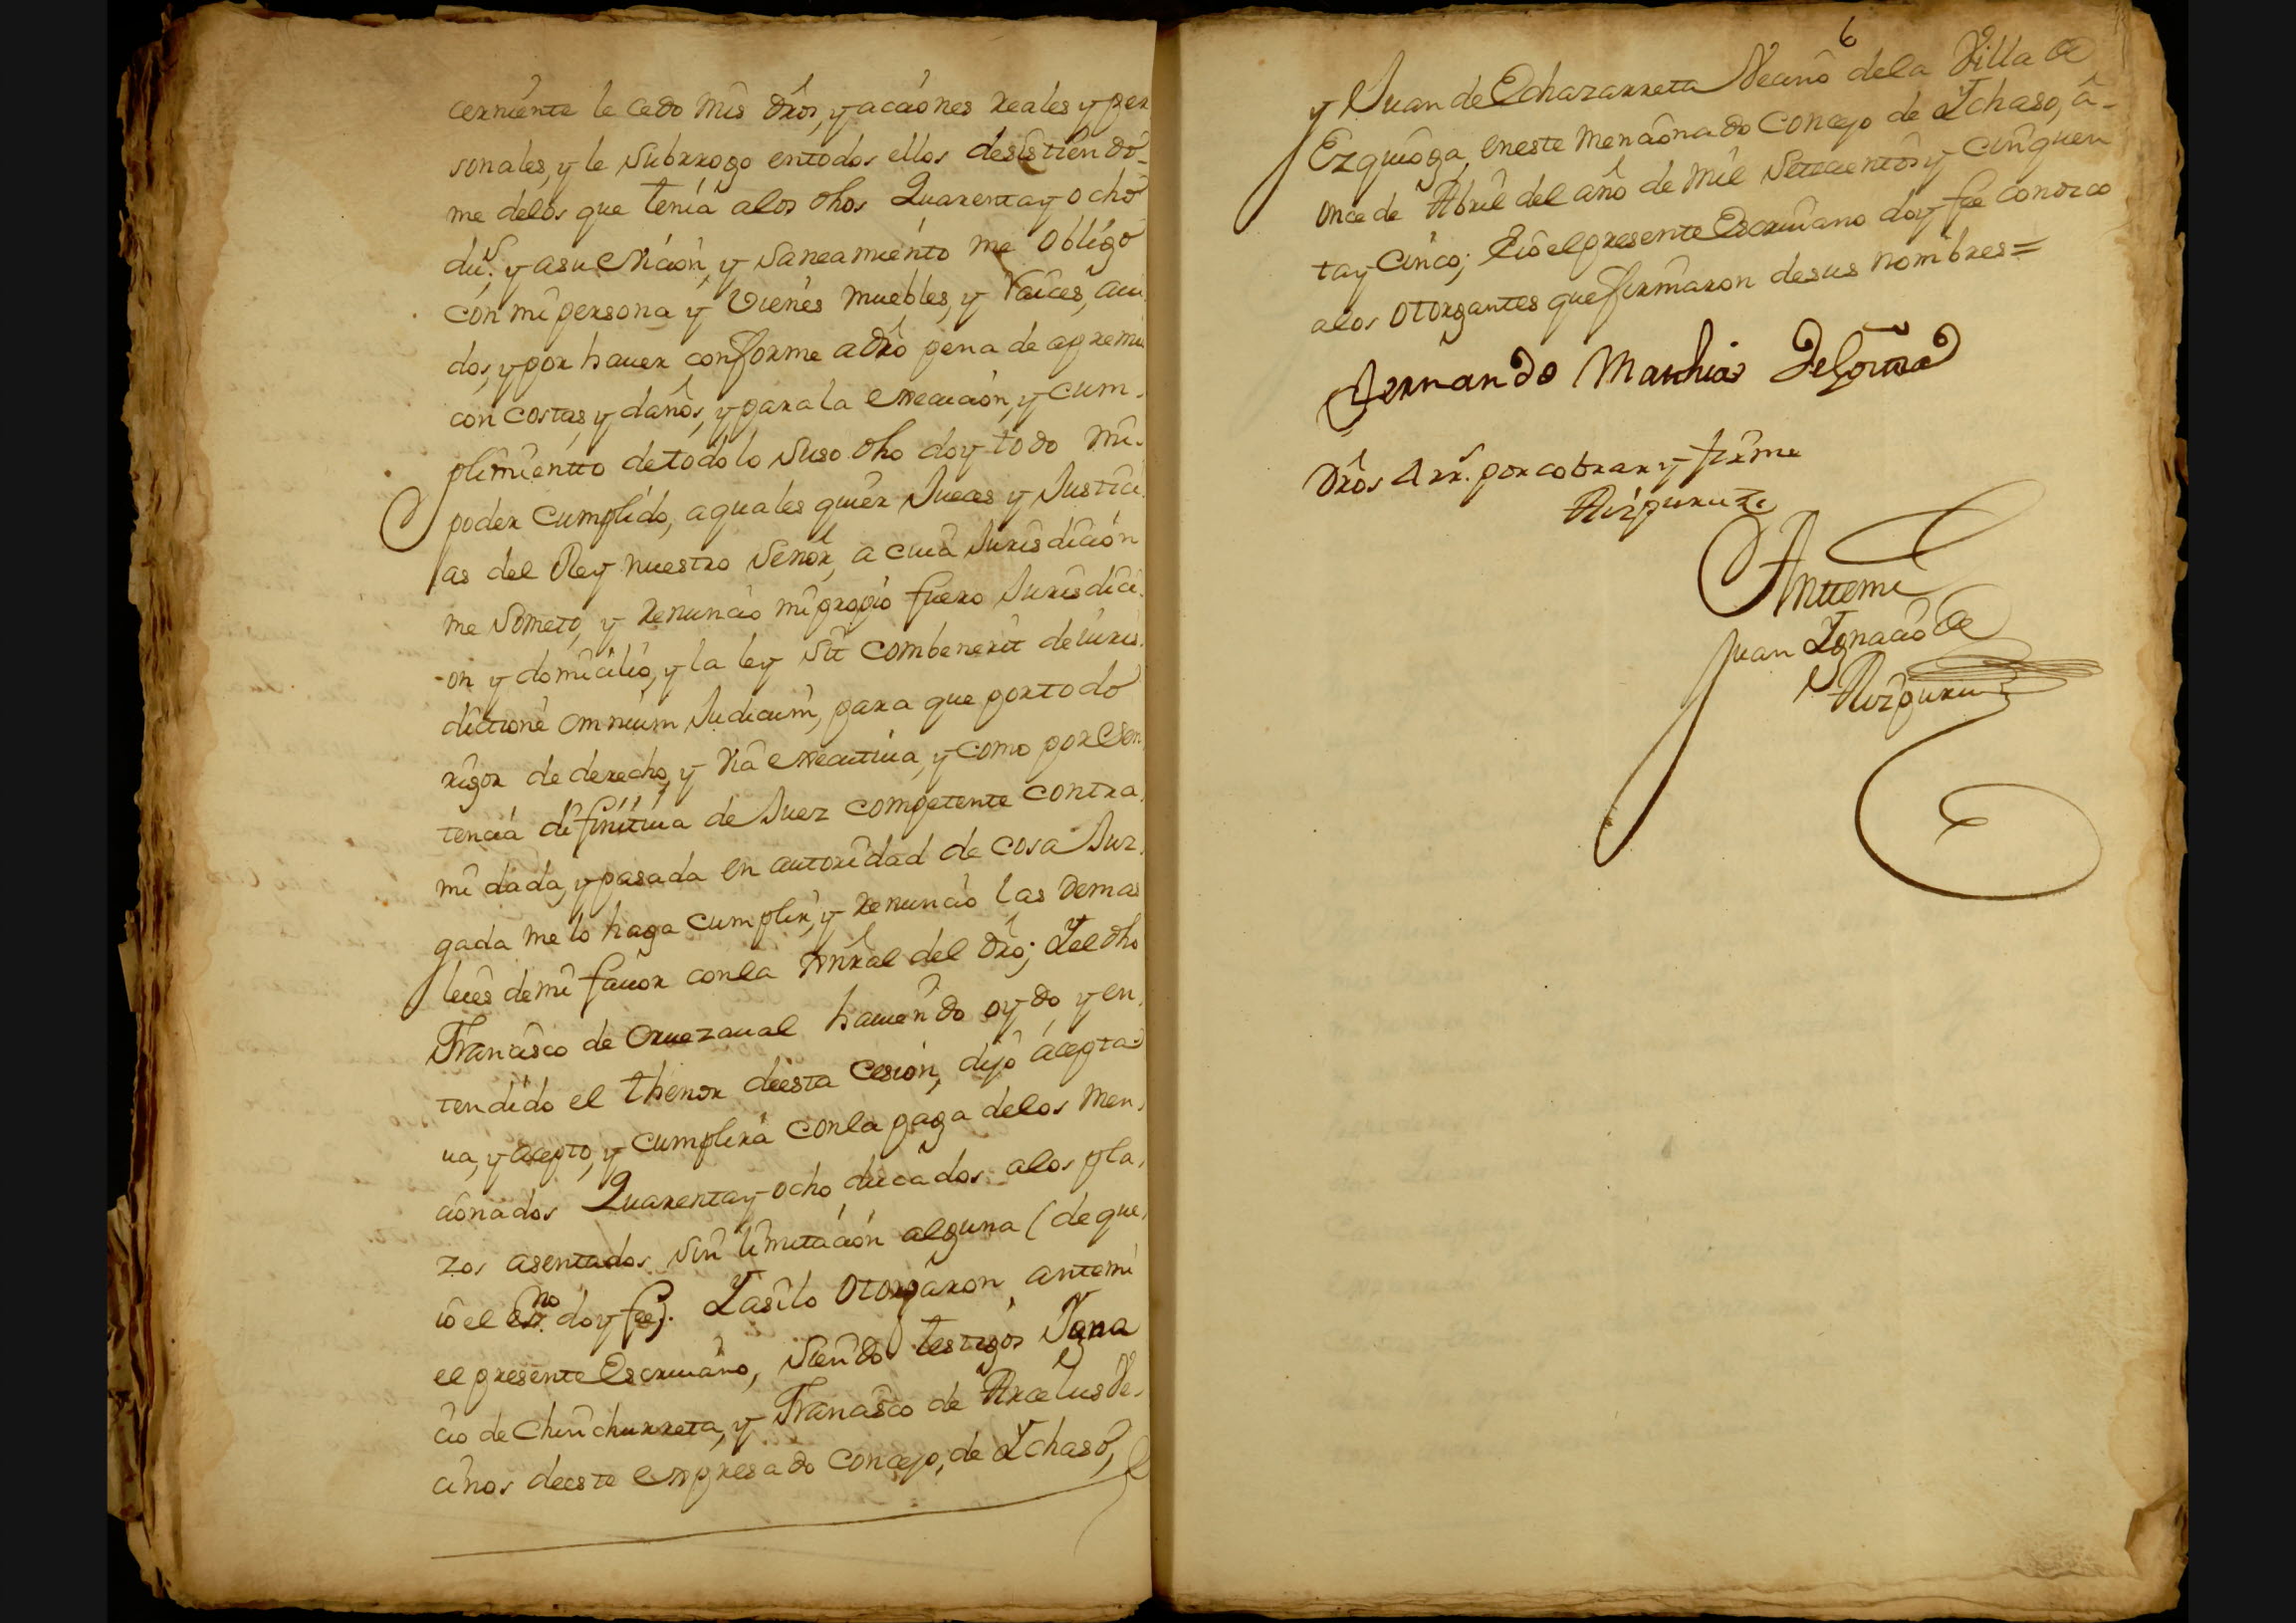 cerniente le cedo mis dr̃os, y acciones reales y per
sonales, y le Subrrogo entodos ellos desistiendo-
me delos que tenia alos dhos Quarenta y ocho
du.s y asu evicion, y Saneamiento me obligo
con mi persona y vienes muebles, y Raices, aui
dos, y por hauer conforme a dr̃o pena de apremio
con costas y daños, y para la execucion, y cum-
plimientto detodo lo Suso dho doy todo mi-
poder cumplido, a quales quier Jueces y Justici
as del Rey nuestro Señor, a cuia Jurisdicion
me Someto, y renuncio mi propio fuero Jurisdici
-on y domicilio, y la ley Sit combenerit de iuris
dictione omnium Judicum, para que por todo
rigor de derecho, y via executiua, y como por Sen
tencia difinitiua de Juez competente contra
mi dada, y pasada en autoridad de cosa Juz
gada me lo haga cumplir, y renuncio las demas
leies de mi fauor con la gnr̃al del dr̃o; Y el dho
Francisco de Oruezaual hauiendo oydo y en
tendido el thenor deesta cesion, dijo acepta
ua, y acepto, y cumplira con la paga delos men
cionados Quarenta y ocho ducados alos pla
zos asentados sin limitacion alguna (de que
io el ess.no doy fee). Y asi lo otorgaron antemi
el presente Escriuano, siendo testigos Igna
cio de Chinchurreta, y Francisco de Arcelus Ve-
cinos deeste expresado concejo, de Ychaso,
6
y Juan de Echazarreta Vecino dela Villa de
Ezquioga, eneste mencionado Concejo de Ychaso, á-
once de Abril del año de mil Setecientos y cinquen
ta y cinco; E io el presente Escriuano doy fee conozco
alos otorgantes que firmaron desus nombres=
Fernando Mathias
Dr̃os 4 rr.s por cobrar y firme
Aizpuru
Antte mi
Juan Ygnacio de
Aizpuru